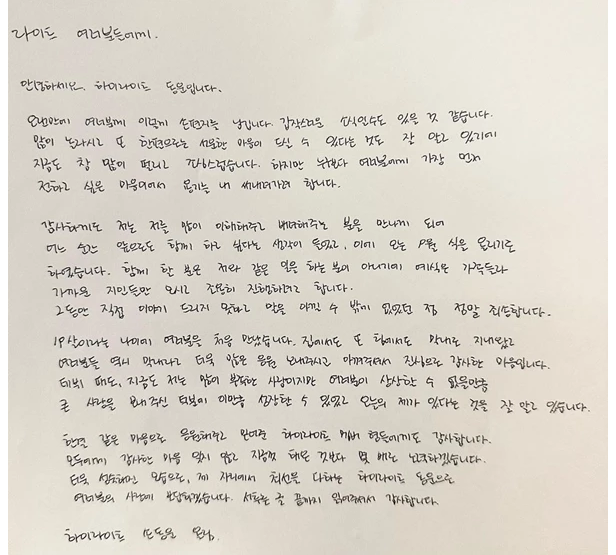 라이트 여러분들에게.
안녕하세요. 하이라이트 동운입니다.
오랜만에 여러분께 이렇게 손편지를 남깁니다. 갑작스러운 소식일수도 있을 것 같습니다.
많이 놀라시고 또 한편으로는 서운한 마음이 드실 수 있다는 것도 잘 알고 있기에
지금도 참 많이 떨리고 조심스럽습니다. 하지만 누구보다 여러분에게 가장 먼저
전하고 싶은 마음에 용기를 내 써내려가려 합니다.
감사하게도 저는 저를 많이 이해해주고 배려해주는 분을 만나게 되어
어느 순간 앞으로도 함께 하고 싶다는 생각이 들었고, 이에 오는 9월 식을 올리기로
하였습니다. 함께 할 분은 저와 같은 일을 하는 분이 아니기에 예식은 가족들과
가까운 지인들만 모시고 조용히 진행하려고 합니다.
그동안 직접 이야기 드리지 못하고 말을 아낄 수 밖에 없었던 점 정말 죄송합니다.
19살이라는 나이에 여러분을 처음 만났습니다. 집에서도 또 팀에서도 막내로 지내왔고
여러분들 역시 막내라고 더욱 많은 응원 보내주시고 아껴주셔서 진심으로 감사한 마음입니다.
데뷔 때도, 지금도 저는 많이 부족한 사람이지만 여러분이 상상할 수 없을만큼
큰 사랑을 보내주신 덕분에 이만큼 성장할 수 있었고 오늘의 제가 있다는 것을 잘 알고 있습니다.
한결 같은 마음으로 응원해주고 믿어준 하이라이트 멤버 형들에게도 감사합니다.
모두에게 감사한 마음 잊지 않고 지금껏 해온 것보다 몇 배로 노력하겠습니다.
더욱 성숙해진 모습으로, 제 자리에서 최선을 다하는 하이라이트 동운으로
여러분의 사랑에 보답하겠습니다. 서투른 글 끝까지 읽어주셔서 감사합니다.
하이라이트 손동운 올림.